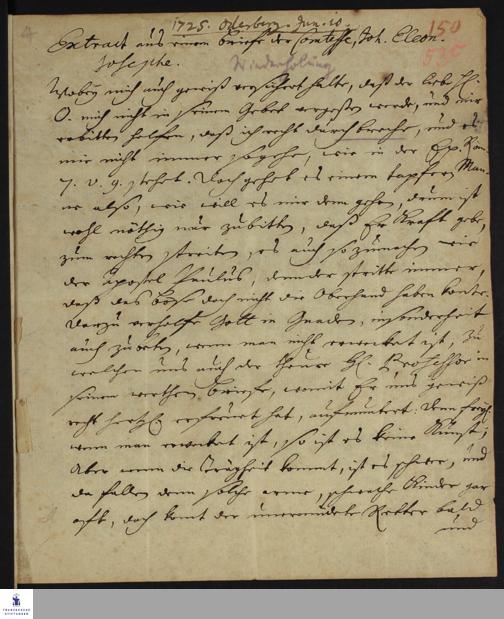 1725. Oderberg. Jun. 10. 150
Extract aus einem Briefe der Comtesse, Joh. Eleon. 535
Josephe. Wiederholung
Wobey mich auch gewiß versichert halte, daß der liebe H.
O. mich nicht in seinem Gebet vergeßen werde, und mir
erbitten helfen, daß ich recht durchbreche, und es
mir nicht immer so gehe, wie in der Ep. Rom.
7. v. 9. stehet. Doch gehet es einem tapfern Man-
ne also, wie will es mir denn gehen, drum ist
wohl nöthig zu bitten, daß Er Kraft gebe,
zum rechten streiten, es auch so zumachen wie
der Apostel Paulus, denn der stritte immer,
daß das böse doch nicht die Oberhand haben konte.
Darzu verhelfe Gott in Gnaden, insonderheit
auch zu beten, wenn man nicht erwecket ist, zu
welchen uns auch der theure H. Professor in
seinem werthen Briefe, womit Er uns gewiß
recht hertzl. erfreuet hat, aufmuntert: Denn
wenn man erwecket ist, so ist es keine Kunst;
Aber wenn die Trägheit kommt, ist es schwer, und
da fallen denn solche arme, schwache Kinder gar
oft, doch komt der unermüdete Retter bald
und
FRANCKESCHE
STIFTUNGEN